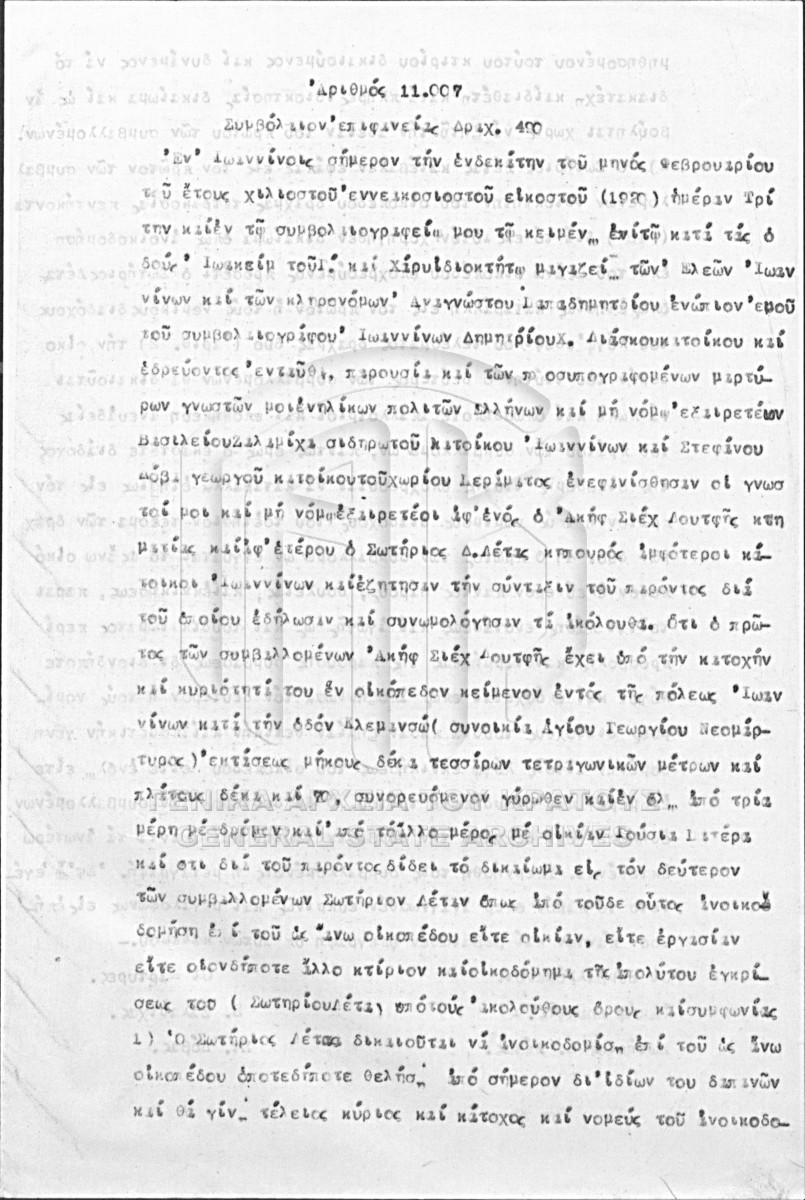 Ἀριθμός 11.007
Συμβόλαιον ἐπιφανείας Δραχ. 400
Ἐν Ἰωαννίνοις σήμερον τήν ἑνδεκάτην τοῦ μηνός Φεβρουαρίου
τοῦ ἔτους χιλιοστοῦ ἐννεακοσιοστοῦ εἰκοστοῦ (1920) ἡμέραν Τρί
την καί ἐν τῷ συμβολαιογραφείῳ μου τῷ κειμένῳ ἐπί τῷ κατά τάς ὁ
δούς Ἰωακείμ τοῦ Γ. καί ἰδιοκτήτῳ μαγαζείῳ τῶν Ἐλεῶν Ἰωαν
νίνων καί τῶν κληρονόμων Ἀναγνώστου Παπαδημητρίου ἐνώπιον ἐμοῦ
τοῦ συμβολαιογράφου Ἰωαννίνων Δημητρίου Χ. Διάσκου κατοίκου καί
ἑδρεύοντος ἐνταῦθα, παρουσία καί τῶν προσυπογραφομένων μαρτύ-
ρων γνωστῶν μοι ἐνηλίκων πολιτῶν Ἑλλήνων καί μή νόμῳ ἐξαιρετέων
Βασιλείου Ζαλαμίχα σιδηρωτοῦ κατοίκου Ἰωαννίνων καί Στεφάνου
Δόβα γεωργοῦ κατοίκου τοῦ χωρίου Περάματος ἐνεφανίσθησαν οἱ γνωσ
τοί μοι καί μή νόμῳ ἐξαιρετέοι ἀφ' ἑνός ὁ Ἀκήφ Σιέχ Λουτφῆς κτη
ματίας καί ἀφ' ἑτέρου ὁ Σωτήριος Δ. Λέτας κηπουρός ἀμφότεροι κά-
τοικοι Ἰωαννίνων καί ἐζήτησαν τήν σύνταξιν τοῦ παρόντος διά
τοῦ ὁποίου ἐδήλωσαν καί συνωμολόγησαν τά ἀκόλουθα. Ὅτι ὁ πρῶ-
τος τῶν συμβαλλομένων Ἀκήφ Σιέχ Λουτφῆς ἔχει ὑπό τήν κατοχήν
καί κυριότητά του ἕν οἰκόπεδον κείμενον ἐντός τῆς πόλεως Ἰωαν
νίνων κατά τήν ὁδόν Κλεμανσώ (συνοικία Ἁγίου Γεωργίου Νεομάρ-
τυρος) ἐκτάσεως μήκους δέκα τεσσάρων τετραγωνικῶν μέτρων καί
πλάτους δέκα καί 70, συνορευόμενον γύρωθεν καί ἐν ὅλῳ ἀπό τρία
μέρη μέ δρόμον καί ἀπό τό ἄλλο μέρος μέ οἰκίαν Ἰούσια Ματέρα
καί ὅτι διά τοῦ παρόντος δίδει τό δικαίωμα εἰς τόν δεύτερον
τῶν συμβαλλομένων Σωτήριον Λέταν ὅπως ἀπό τοῦδε οὗτος ἀνοικο
δομήση ἐπί τοῦ ὡς ἄνω οἰκοπέδου εἴτε οἰκίαν, εἴτε ἐργασίαν
εἴτε οἱονδήποτε ἄλλο κτίριον καί οἰκοδόμημα τῆς ἀπολύτου ἐγκρί-
σεως του (Σωτηρίου Λέτα) ὑπό τούς ἀκολούθους ὅρους καί συμφωνίας
1) Ὁ Σωτήριος Λέτας δικαιοῦται νά ἀνοικοδομίσῃ ἐπί τοῦ ὡς ἄνω
οἰκοπέδου ὁποτεδήποτε θελήσῃ ἀπό σήμερον δι' ἰδίων του δαπανῶν
καί θά γίνῃ τέλειος κύριος καί κάτοχος καί νομεύς τοῦ ἀνοικοδο-
ΓΕΝΙΚΑ ΑΡΧΕΙΑ ΤΟΥ ΚΡΑΤΟΥΣ
GENERAL STATE ARCHIVES